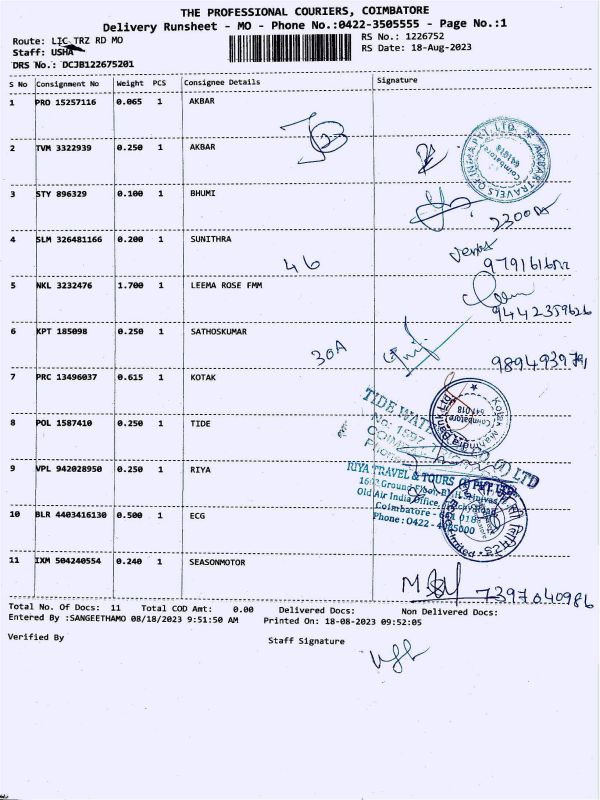 THE PROFESSIONAL COURIERS, COIMBATORE
Delivery Runsheet - MO - Phone No.:0422-3505555 - Page No.:1
Route: LIC TRZ RD MO
RS No.: 1226752
Staff: USHA
RS Date: 18-Aug-2023
DRS No.: DCJB122675201
S No Consignment No Weight PCS Consignee Details Signature
1 PRO 15257116 0.065 1 AKBAR
2 TVM 3322939 0.250 1 AKBAR
AKBAR TRAVELS OF INDIA PVT. LTD.
Coimbatore
641018
3 STY 896329 0.100 1 BHUMI
4 SLM 326481166 0.200 1 SUNITHRA
46
5 NKL 3232476 1.700 1 LEEMA ROSE FMM
9442359626
6 KPT 185098 0.250 1 SATHOSKUMAR
30A
7 PRC 13496037 0.615 1 KOTAK
Kotak Mahindra Bank
Coimbatore
641018
8 POL 1587410 0.250 1 TIDE
TIDE WATER
LTD
9 VPL 942028950 0.250 1 RIYA
RIYA TRAVEL & TOURS (I) PVT LTD
Ground Floor
Old Air India Office,
Coimbatore - 641 018
Phone : 0422 -
10 BLR 4403416130 0.500 1 ECG
11 IXM 504240554 0.240 1 SEASONMOTOR
7397040986
Total No. Of Docs: 11 Total COD Amt: 0.00 Delivered Docs: Non Delivered Docs:
Entered By :SANGEETHAMO 08/18/2023 9:51:50 AM Printed On: 18-08-2023 09:52:05
Verified By Staff Signature